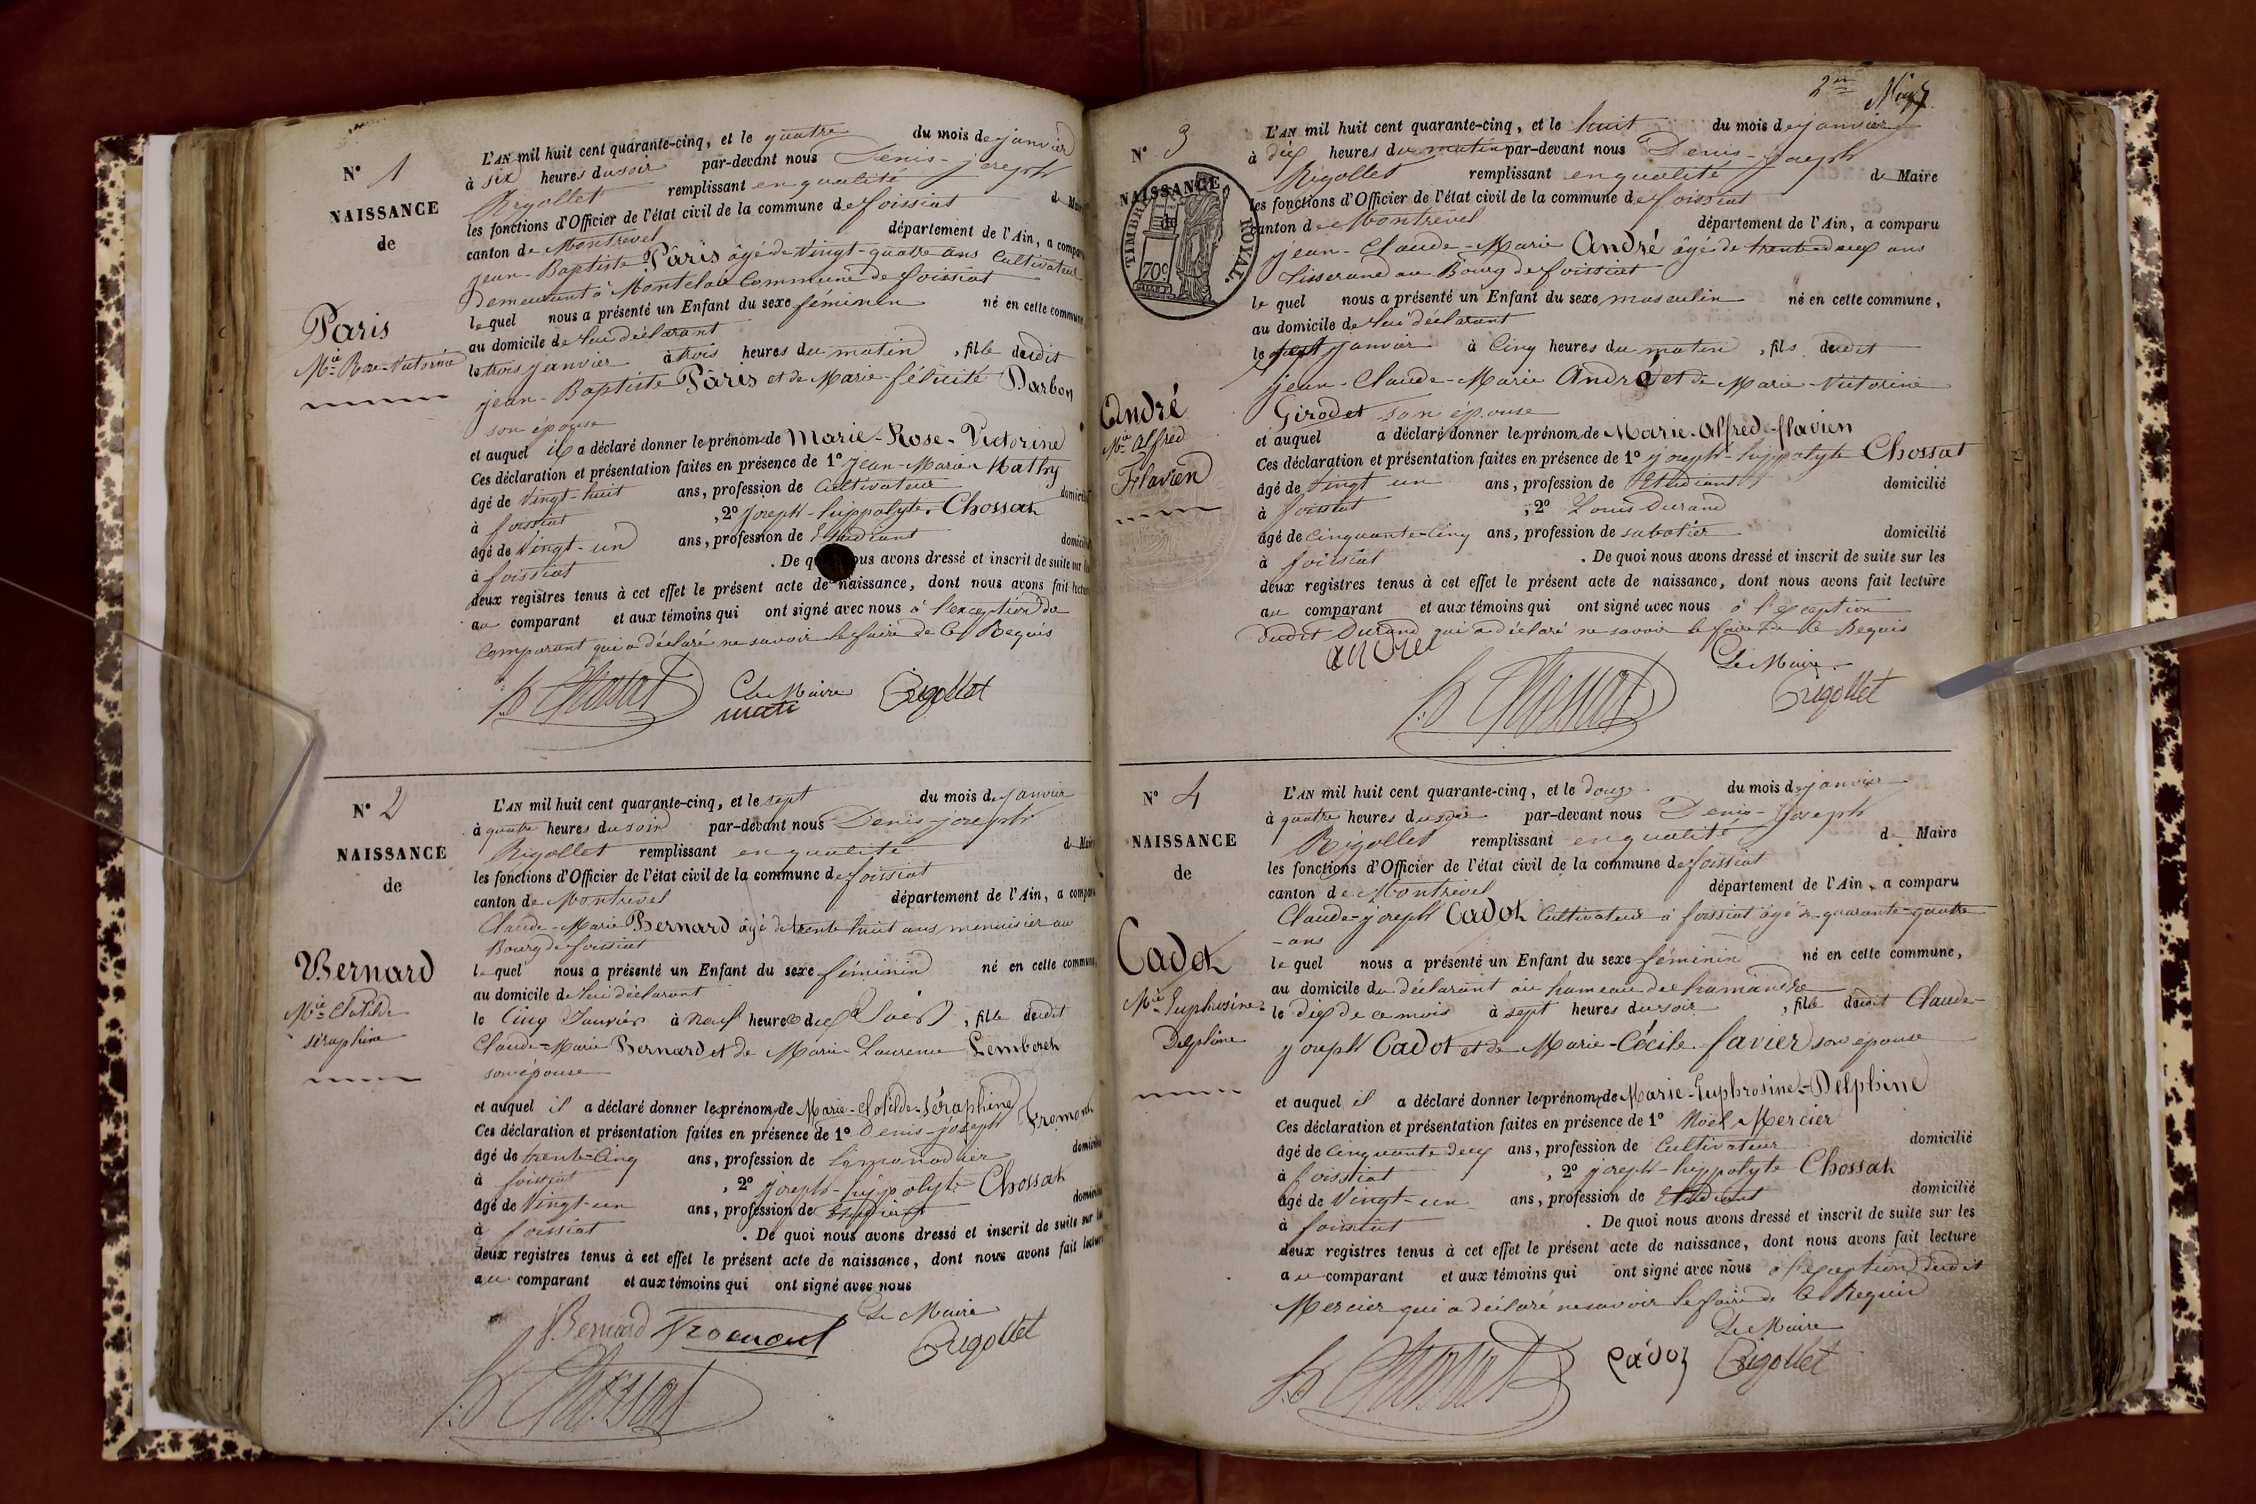 N° 1
NAISSANCE
de
Paris
M.ie Rose-Victorine
L'AN mil huit cent quarante-cinq, et le quatre du mois de janvier
à six heures du soir par-devant nous Denis-joseph
Rigollet remplissant en qualité de Maire
les fonctions d'Officier de l'état civil de la commune de foissiat
canton de Montrevel département de l'Ain, a comparu
jean-Baptiste Pâris âgé de vingt-quatre ans Cultivateur
Demeurant à Commune de foissiat
le quel nous a présenté un Enfant du sexe féminin né en cette commune
au domicile de lui déclarant
le trois janvier à trois heures du matin, fille dudit
jean-Baptiste Pâris et de Marie-félicité Darbon
son épouse
et auquel il a déclaré donner les prénoms de Marie-Rose-Victorine
Ces déclaration et présentation faites en présence de 1° jean-Marie Mathy
âgé de vingt-huit ans, profession de Cultivateur domicilié
à foissiat, 2° joseph-hyppolyte Chossat
âgé de vingt-un ans, profession de Etudiant domicilié
à foissiat. De quoi nous avons dressé et inscrit de suite sur les
deux registres tenus à cet effet le présent acte de naissance, dont nous avons fait lecture
au comparant et aux témoins qui ont signé avec nous à l'exception du
comparant qui a déclaré ne savoir le faire de ce Requis
h. Chossat Le Maire Rigollet
mati
N° 2
NAISSANCE
de
Bernard
M.ie Clotilde
séraphine
L'AN mil huit cent quarante-cinq, et le sept du mois de janvier
à quatre heures du soir par-devant nous Denis-joseph
Rigollet remplissant en qualité de Maire
les fonctions d'Officier de l'état civil de la commune de foissiat
canton de Montrevel département de l'Ain, a comparu
Claude-Marie Bernard âgé de trente huit ans menuisier au
Bourg de foissiat
le quel nous a présenté un Enfant du sexe féminin né en cette commune,
au domicile de lui déclarant
le Cinq Janvier à Neuf heures du Soir, fille dudit
Claude-Marie Bernard et de Marie Laurence
son épouse
et auquel il a déclaré donner les prénoms de Marie-Clotilde-séraphine
Ces déclaration et présentation faites en présence de 1° Denis-joseph Fromont
âgé de trente-Cinq ans, profession de Limonadier domicilié
à foissiat, 2° joseph-hyppolyte Chossat
âgé de vingt-un ans, profession de Etudiant domicilié
à foissiat. De quoi nous avons dressé et inscrit de suite sur les
deux registres tenus à cet effet le présent acte de naissance, dont nous avons fait lecture
au comparant et aux témoins qui ont signé avec nous
Le Maire
Bernard Fromont Rigollet
h. Chossat
2.me
N° 3
NAISSANCE
de
TIMBRE ROYAL
70 c.
André
M.ie Alfred
Flavien
L'AN mil huit cent quarante-cinq, et le huit du mois de janvier
à dix heures du matin par-devant nous Denis-joseph
Rigollet remplissant en qualité de Maire
les fonctions d'Officier de l'état civil de la commune de foissiat
canton de Montrevel département de l'Ain, a comparu
jean-Claude-Marie André âgé de trente-deux ans
Tisserand au Bourg de foissiat
le quel nous a présenté un Enfant du sexe masculin né en cette commune,
au domicile de lui déclarant
le sept janvier à Cinq heures du matin, fils dudit
jean-Claude-Marie André et de Marie-Victorine
Girodet son épouse
et auquel a déclaré donner les prénoms de Marie-Alfred-flavien
Ces déclaration et présentation faites en présence de 1° joseph-hyppolyte Chossat
âgé de vingt un ans, profession de Etudiant domicilié
à foissiat, 2° Louis Durand
âgé de cinquante-cinq ans, profession de sabotier domicilié
à foissiat. De quoi nous avons dressé et inscrit de suite sur les
deux registres tenus à cet effet le présent acte de naissance, dont nous avons fait lecture
au comparant et aux témoins qui ont signé avec nous à l'exception
dudit Durand qui a déclaré ne savoir le faire de ce Requis
andré Le Maire
h. Chossat Rigollet
N° 4
NAISSANCE
de
Cadot
M.ie Euphrosine
Delphine
L'AN mil huit cent quarante-cinq, et le douze du mois de janvier
à quatre heures du soir par-devant nous Denis-joseph
Rigollet remplissant en qualité de Maire
les fonctions d'Officier de l'état civil de la commune de foissiat
canton de Montrevel département de l'Ain, a comparu
Claude-joseph Cadot Cultivateur à foissiat âgé de quarante-quatre
-ans
le quel nous a présenté un Enfant du sexe féminin né en cette commune,
au domicile du déclarant au hameau de
le dix de ce mois à sept heures du soir, fille dudit Claude-
joseph Cadot et de Marie-Cécile favier son épouse
et auquel il a déclaré donner les prénoms de Marie-Euphrosine-Delphine
Ces déclaration et présentation faites en présence de 1° Noël Mercier
âgé de cinquante deux ans, profession de Cultivateur domicilié
à foissiat, 2° joseph-hyppolyte Chossat
âgé de vingt-un ans, profession de Etudiant domicilié
à foissiat. De quoi nous avons dressé et inscrit de suite sur les
deux registres tenus à cet effet le présent acte de naissance, dont nous avons fait lecture
au comparant et aux témoins qui ont signé avec nous à l'exception dudit
Mercier qui a déclaré ne savoir le faire de ce Requis
Le Maire
h. Chossat cadoz Rigollet